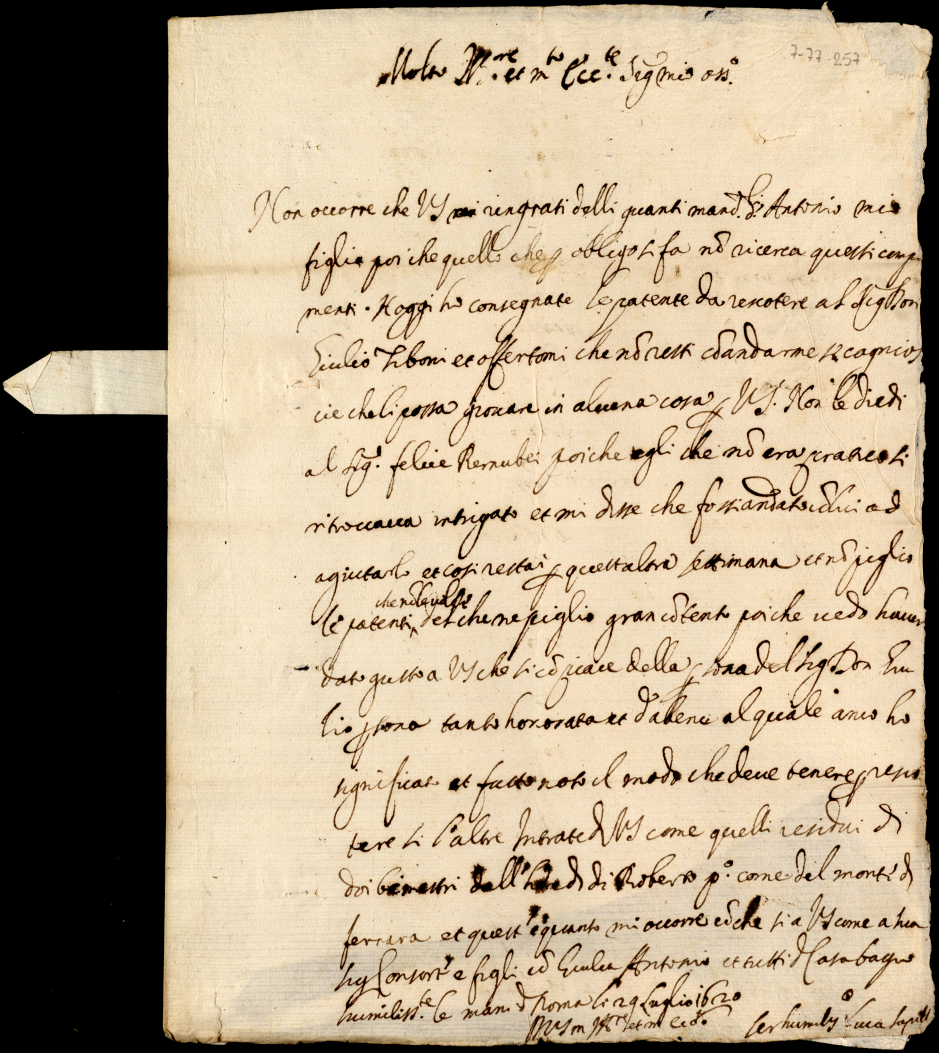 7-77-257
Molto Ill.re et m.to Ecc.te Sig mio oss.o
Non occorre che VS mi ringrati delli guanti mand. Antonio mio
figlio poi che quello che p obligo si fa nō ricerca questi comp
menti. Hoggi ho consegnate le patente da rescotere al Sig Don
Giulio Tiboni et offertomi che nō resti cōandarme
cie che li possa giovare in alcuna cosa p VS. Non le diedi
al Sig.r felice poiche egli che nō era pratico si
ritrovava intrigato et mi disse che fossi andato ad
agiutarlo et cosi restai p quest altra settimana et nō piglio
le patenti, et che ne piglio gran cōtento poiche vedo haver
dato gusto a VS che si cōpiace della psona del Sig Don Giu
lio psona tanto honorata et da bene al quale anco ho
significato et fatto noto il modo che deve tenere p resco
tere si l'altre Intrate d VS come quelli residui di
doi bimestri dell' di Roberto p.o come del monte d
ferrara et quest' è quanto mi occorre cō che si a VS come a sua
Sig Consorte e figli cō Giulia Antonio et tutti d Casa bagio
humiliss.te le mani d Roma li 29 Luglio 1620
D VS m Ill.re et m Ecc.te Ser humiliss.o Luca